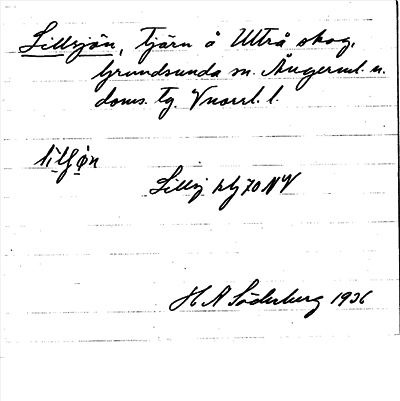 Lillsjön, tjärn å Utträ skog,
Grundsunda sn. Ångerml. n.
doms. tg. Vnorrl. l.
Lillsj kbj 70 NV
H A Söderberg 1936